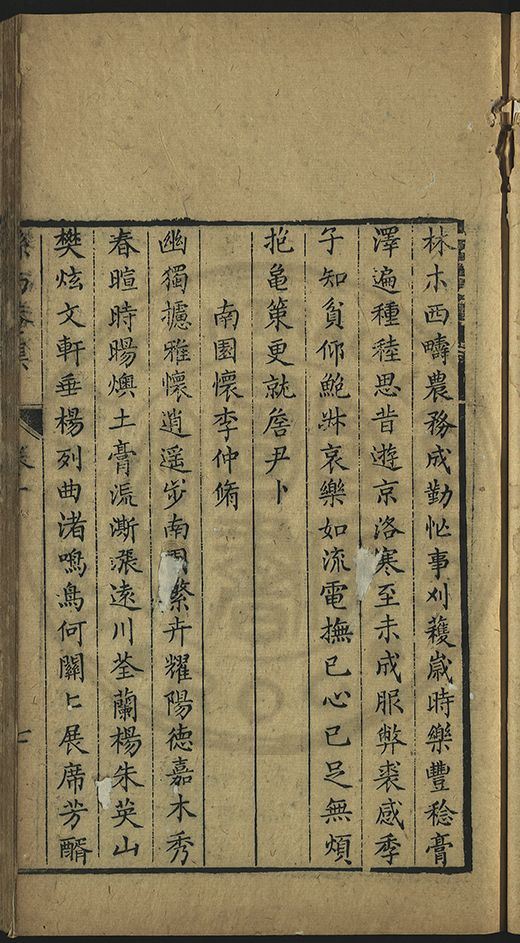 林木西疇農務成勤怭事刈穫嵗時樂豐稔膏
澤遍種稑思昔遊京洛寒至未成服弊裘感季
子知貧仰鮑叔哀樂如流電撫已心已足無煩
抱龜策更就詹尹卜
南園懷李仲脩
幽獨攄雅懷逍遥步南園繁卉耀陽德嘉木秀
春暄時暘燠土膏流澌漲遠川荃蘭楊朱英山
樊炫文軒垂楊列曲渚鳴鳥何關匕展席芳醑
七